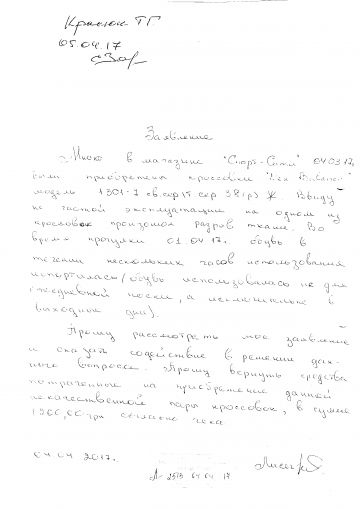 Крамон ТГ
05.04.17
Заявление
Мною в магазине "Спорт-Сити" 04.03.17
были приобретены кроссовки "
модель 1301-7 св.сер/т.сер 38(р) Ж. Ввиду
не частой эксплуатации на одном из
кроссовок произошел разрыв ткани. Во
время прогулки 01.04.17. обувь в
течение нескольких часов использования
испортилась (обувь использовалась не для
ежедневной носки, а исключительно в
выходные дни).
Прошу рассмотреть мое заявление
и оказать содействие в решении дан-
ного вопроса. Прошу вернуть средства
потраченные на приобретение данной
некачественной пары кроссовок, в сумме
1200,00 грн согласно чека.
04.04 2017.
04 04 17